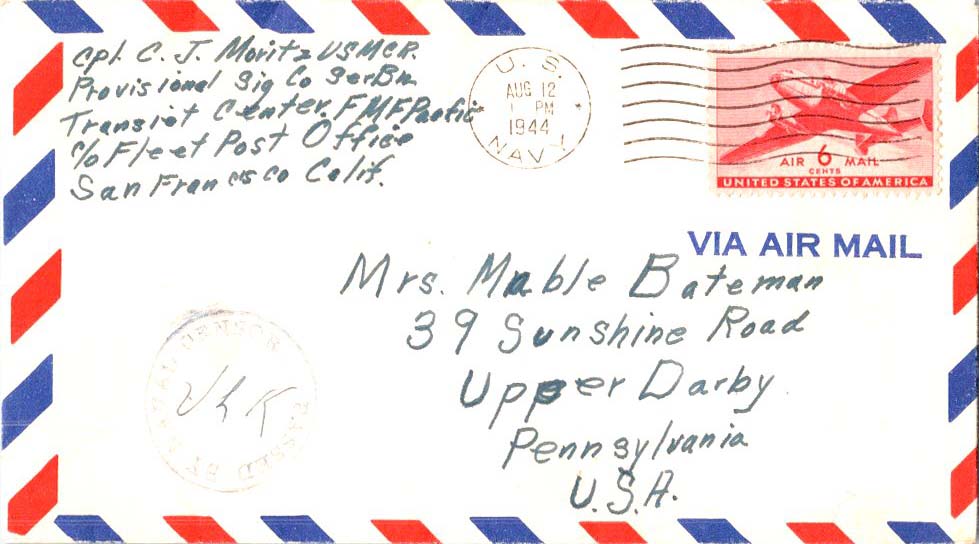 Cpl. C. J. Moritz USMCR.
Provisional Sig Co SerBn
Transient Center. FMFPacific
c/o Fleet Post Office
San Francisco Calif.
U. S.
AUG 12
1 PM
1944
NAVY
AIR 6 MAIL
CENTS
UNITED STATES OF AMERICA
VIA AIR MAIL
Mrs. Mable Bateman
39 Sunshine Road
Upper Darby
Pennsylvania
U.S.A.
PASSED BY NAVAL CENSOR